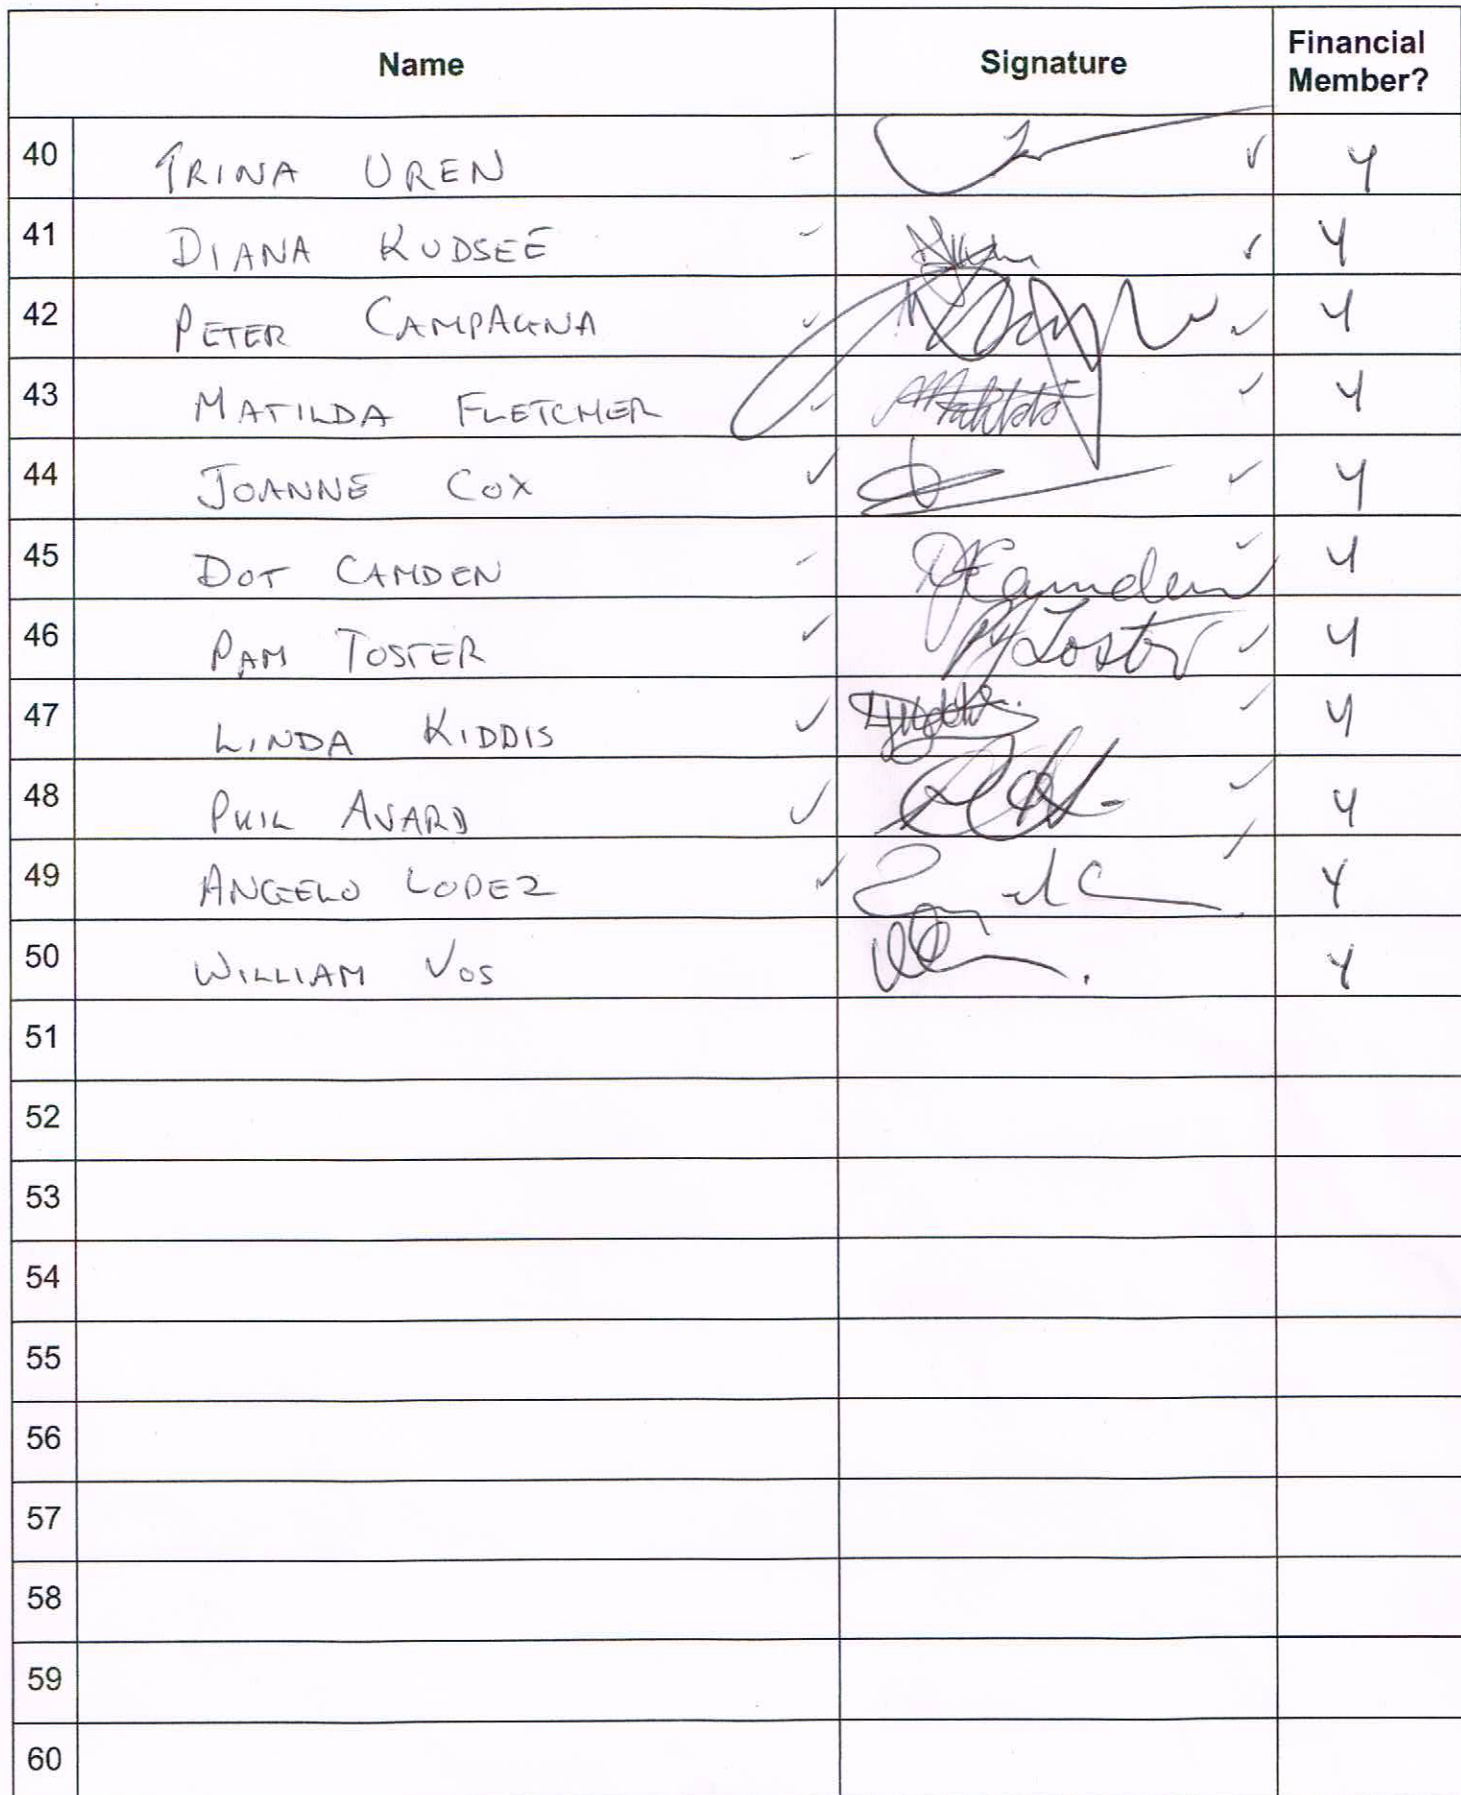 Name Signature Financial Member?
40 TRINA UREN Y
41 DIANA KUDSEE Y
42 PETER CAMPAGNA Y
43 MATILDA FLETCHER Matilda Y
44 JOANNE COX Y
45 DOT CAMDEN Camden Y
46 PAM TOSTER Y
47 LINDA KIDDIS Y
48 PHIL AVARD Y
49 ANGELO LOPEZ Y
50 WILLIAM VOS Y
51
52
53
54
55
56
57
58
59
60